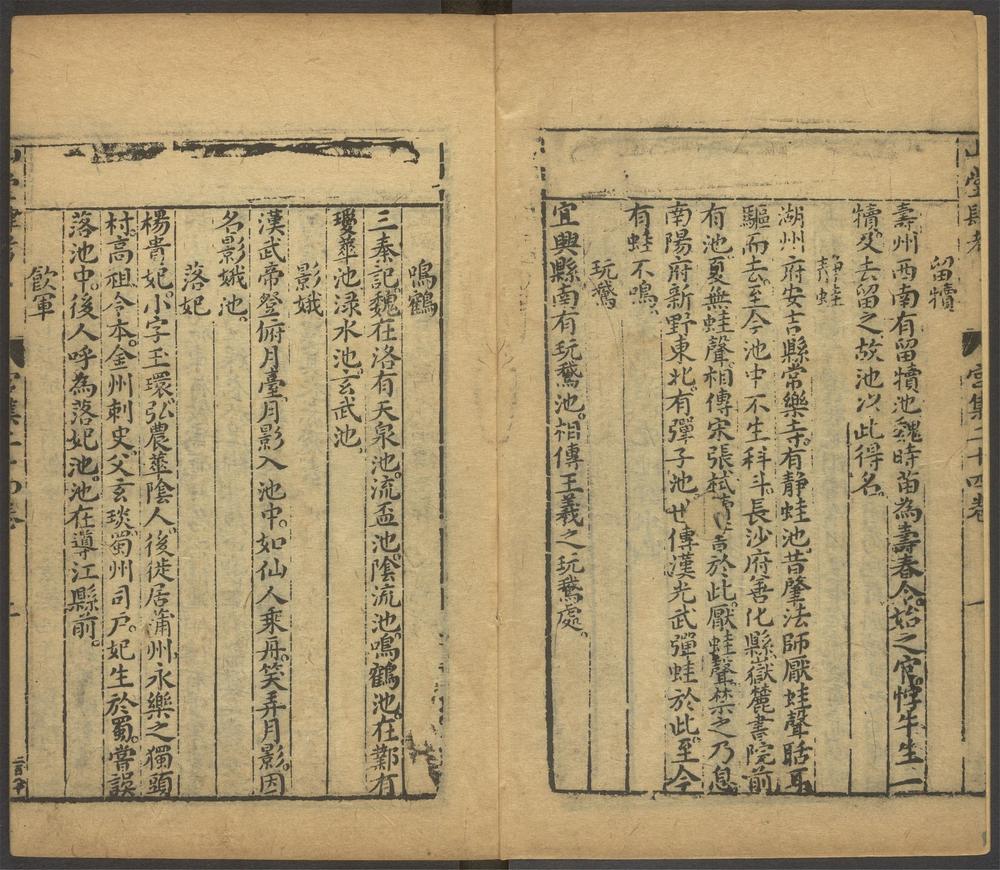 山堂肆考 宮集二十四卷 一
留犢
壽州西南有留犢池魏時苗為壽春令始之官牸牛生一
犢及去留之故池以此得名
靜蛙
湖州府安吉縣常樂寺有靜蛙池昔肇法師厭蛙聲聒耳
驅而去至今池中不生科斗長沙府善化縣嶽麓書院前
有池夏無蛙聲相傳宋張栻於此厭蛙聲禁之乃息
南陽府新野東北有彈子池世傳漢光武彈蛙於此至今
有蛙不鳴
玩鵝
宜興縣南有玩鵝池相傳王羲之玩鵝處
鳴鶴
三秦記魏在洛有天泉池流盃池陰流池鳴鶴池在鄴有
瓊華池淥水池玄武池
影娥
漢武帝登俯月臺月影入池中如仙人乘舟笑弄月影因
名影娥池
落妃
楊貴妃小字玉環弘農華陰人後徙居蒲州永樂之獨頭
村高祖令本金州刺史父玄琰蜀州司戶妃生於蜀嘗誤
落池中後人呼為落妃池池在導江縣前
飲軍